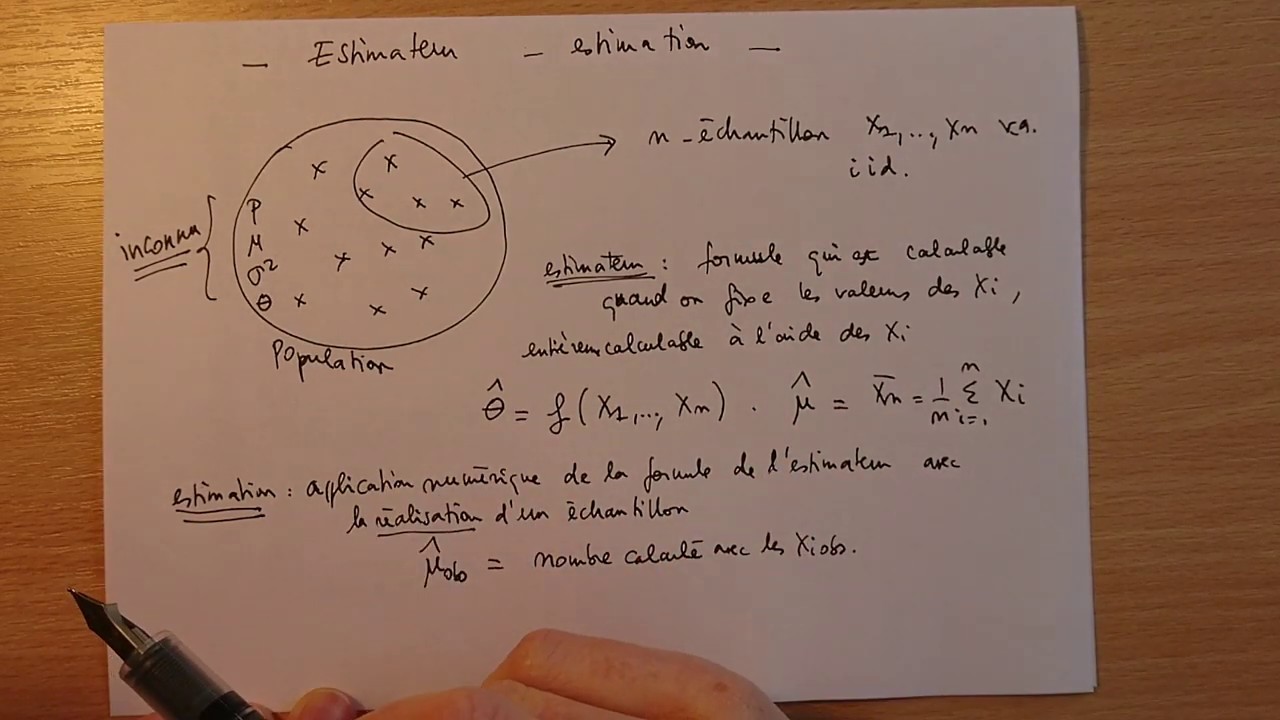 — Estimateur — estimation —
n-échantillon X1,..., Xn v.a.
iid.
inconnu
p
μ
σ²
θ
Population
estimateur : formule qui est calculable
quand on fixe les valeurs des Xi,
entièrem calculable à l'aide des Xi
θ̂ = f(X1,..., Xn) . μ̂ = X̄n = 1/n Σ i=1 n Xi
estimation : application numérique de la formule de l'estimateur avec
la réalisation d'un échantillon
μ̂obs = nombre calculé avec les Xiobs.